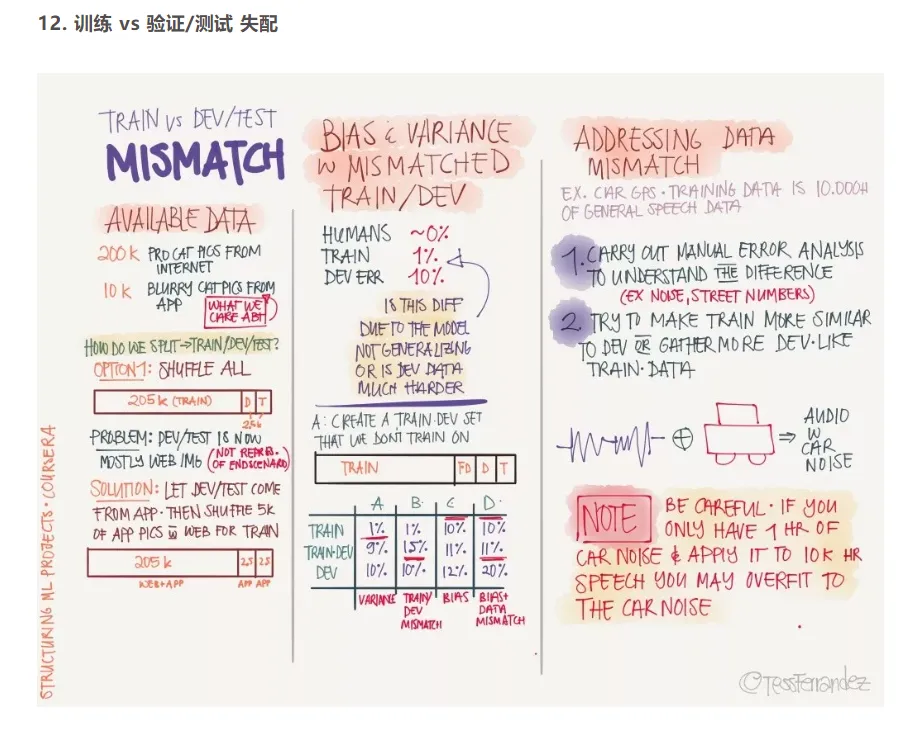 12. 训练 vs 验证/测试 失配
TRAIN vs DEV/TEST
MISMATCH
AVAILABLE DATA
200k PRO CAT PICS FROM
INTERNET
10k BLURRY CAT PICS FROM
APP
WHAT WE
CARE ABT
HOW DO WE SPLIT → TRAIN/DEV/TEST?
OPTION1: SHUFFLE ALL
205k (TRAIN) D T
PROBLEM: DEV/TEST IS NOW
MOSTLY WEB IMG (NOT REPR.
OF END SCENARIO)
SOLUTION: LET DEV/TEST COME
FROM APP. THEN SHUFFLE 5K
OF APP PICS W WEB FOR TRAIN
205k 2.5 2.5
WEB+APP APP APP
STRUCTURING ML PROJECTS · COURSERA
BIAS & VARIANCE
W MISMATCHED
TRAIN/DEV
HUMANS ~0%
TRAIN 1%
DEV ERR 10%
IS THIS DIFF
DUE TO THE MODEL
NOT GENERALIZING
OR IS DEV DATA
MUCH HARDER
A: CREATE A TRAIN-DEV SET
THAT WE DON'T TRAIN ON
TRAIN TD D T
A B C D
TRAIN 1% 1% 10% 10%
TRAIN-DEV 9% 1.5% 11% 11%
DEV 10% 10% 12% 20%
VARIANCE TRAIN/ BIAS BIAS+
DEV DATA
MISMATCH MISMATCH
ADDRESSING DATA
MISMATCH
EX. CAR GPS · TRAINING DATA IS 10.000H
OF GENERAL SPEECH DATA
1. CARRY OUT MANUAL ERROR ANALYSIS
TO UNDERSTAND THE DIFFERENCE
(EX NOISE, STREET NUMBERS)
2. TRY TO MAKE TRAIN MORE SIMILAR
TO DEV OR GATHER MORE DEV-LIKE
TRAIN-DATA
AUDIO
W
CAR
NOISE
NOTE BE CAREFUL · IF YOU
ONLY HAVE 1 HR OF
CAR NOISE & APPLY IT TO 10K HR
SPEECH YOU MAY OVERFIT TO
THE CAR NOISE
©TessFerrandez